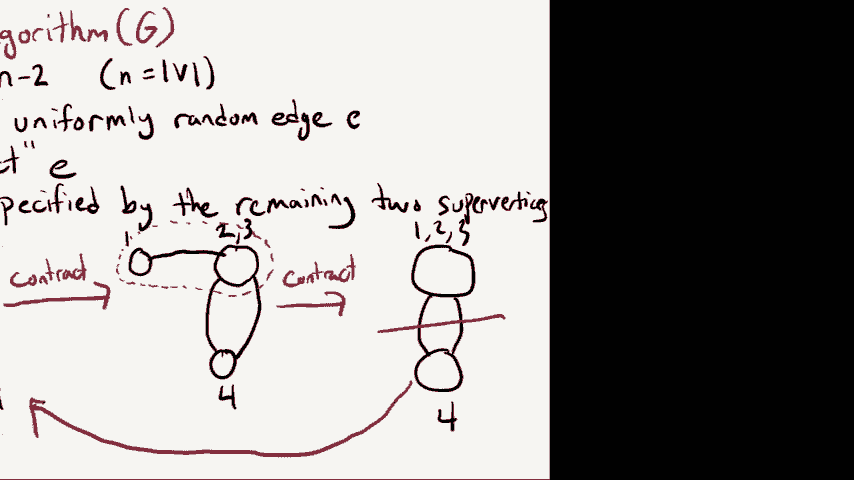 gorithm(G)
n-2 (n=|V|)
uniformly random edge e
ct" e
pecified by the remaining two supervertices
1 2,3 1,2,3
contract contract
4 4